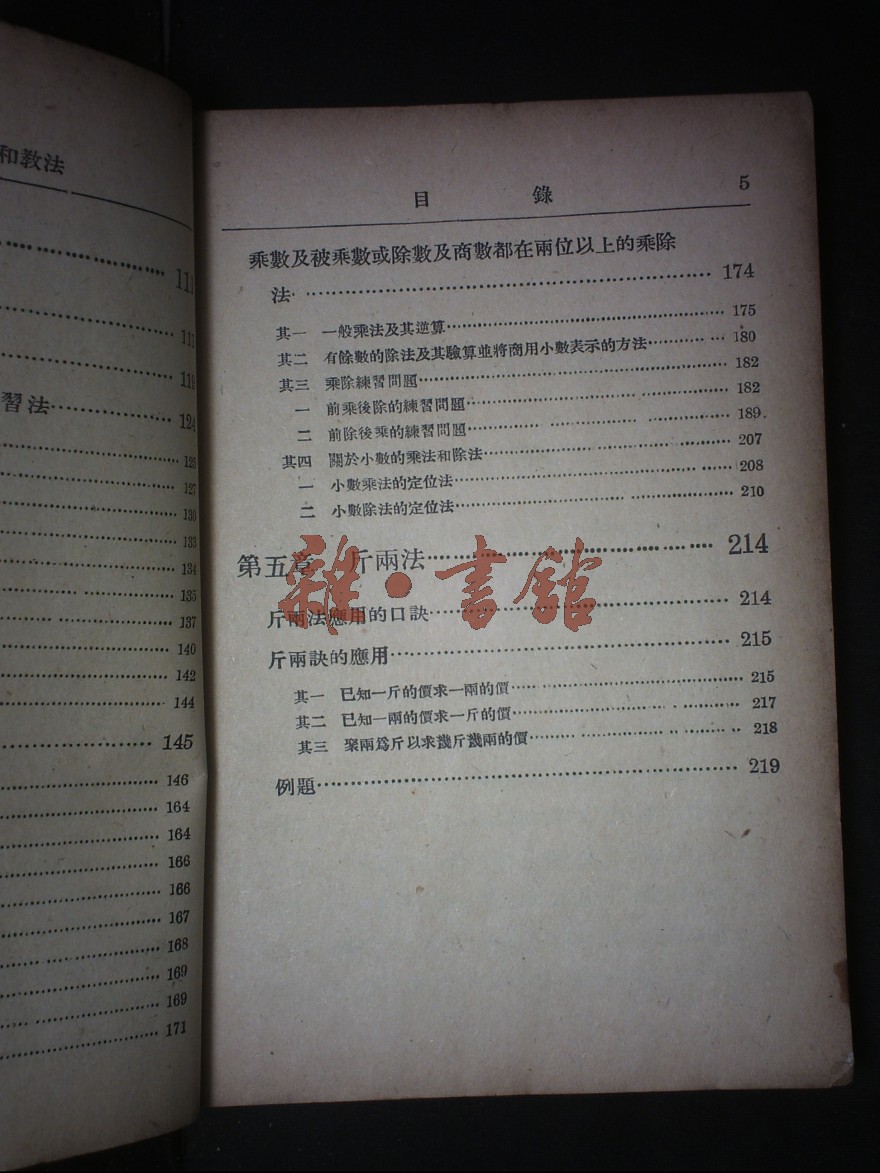 和教法
111
111
119
習法 124
126
127
130
133
134
135
137
140
142
144
145
146
164
164
166
166
167
168
169
169
171
目 錄 5
乘數及被乘數或除數及商數都在兩位以上的乘除
法 174
其一 一般乘法及其逆算 175
其二 有餘數的除法及其驗算並將商用小數表示的方法 180
其三 乘除練習問題 182
一 前乘後除的練習問題 182
二 前除後乘的練習問題 189
其四 關於小數的乘法和除法 207
一 小數乘法的定位法 208
二 小數除法的定位法 210
第五章 斤兩法 214
斤兩法應用的口訣 214
斤兩訣的應用 215
其一 已知一斤的價求一兩的價 215
其二 已知一兩的價求一斤的價 217
其三 聚兩爲斤以求幾斤幾兩的價 218
例題 219
雜·書館